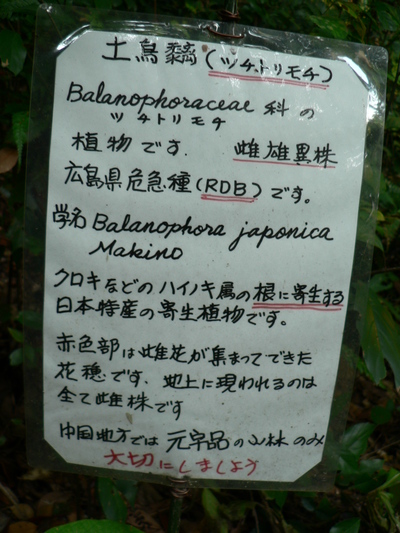 土鳥黐(ツチトリモチ)
Balanophoraceae 科の
ツチトリモチ
植物です. 雌雄異株
広島県危急種(RDB)です。
学名 Balanophora japonica
Makino
クロキなどのハイノキ属の根に寄生する
日本特産の寄生植物です。
赤色部は雌花が集まってできた
花穂です、地上に現われるのは
全て雌株です
中国地方では 元宇品の山林のみ
大切にしましょう